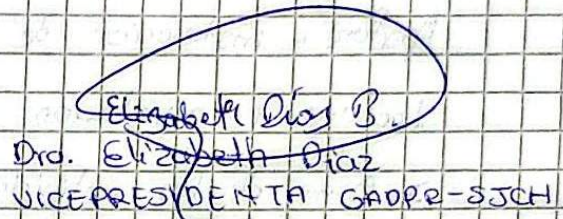 Elizabeth Días B.
Dra. Elizabeth Diaz
VICEPRESIDENTA GADPR-SJCH